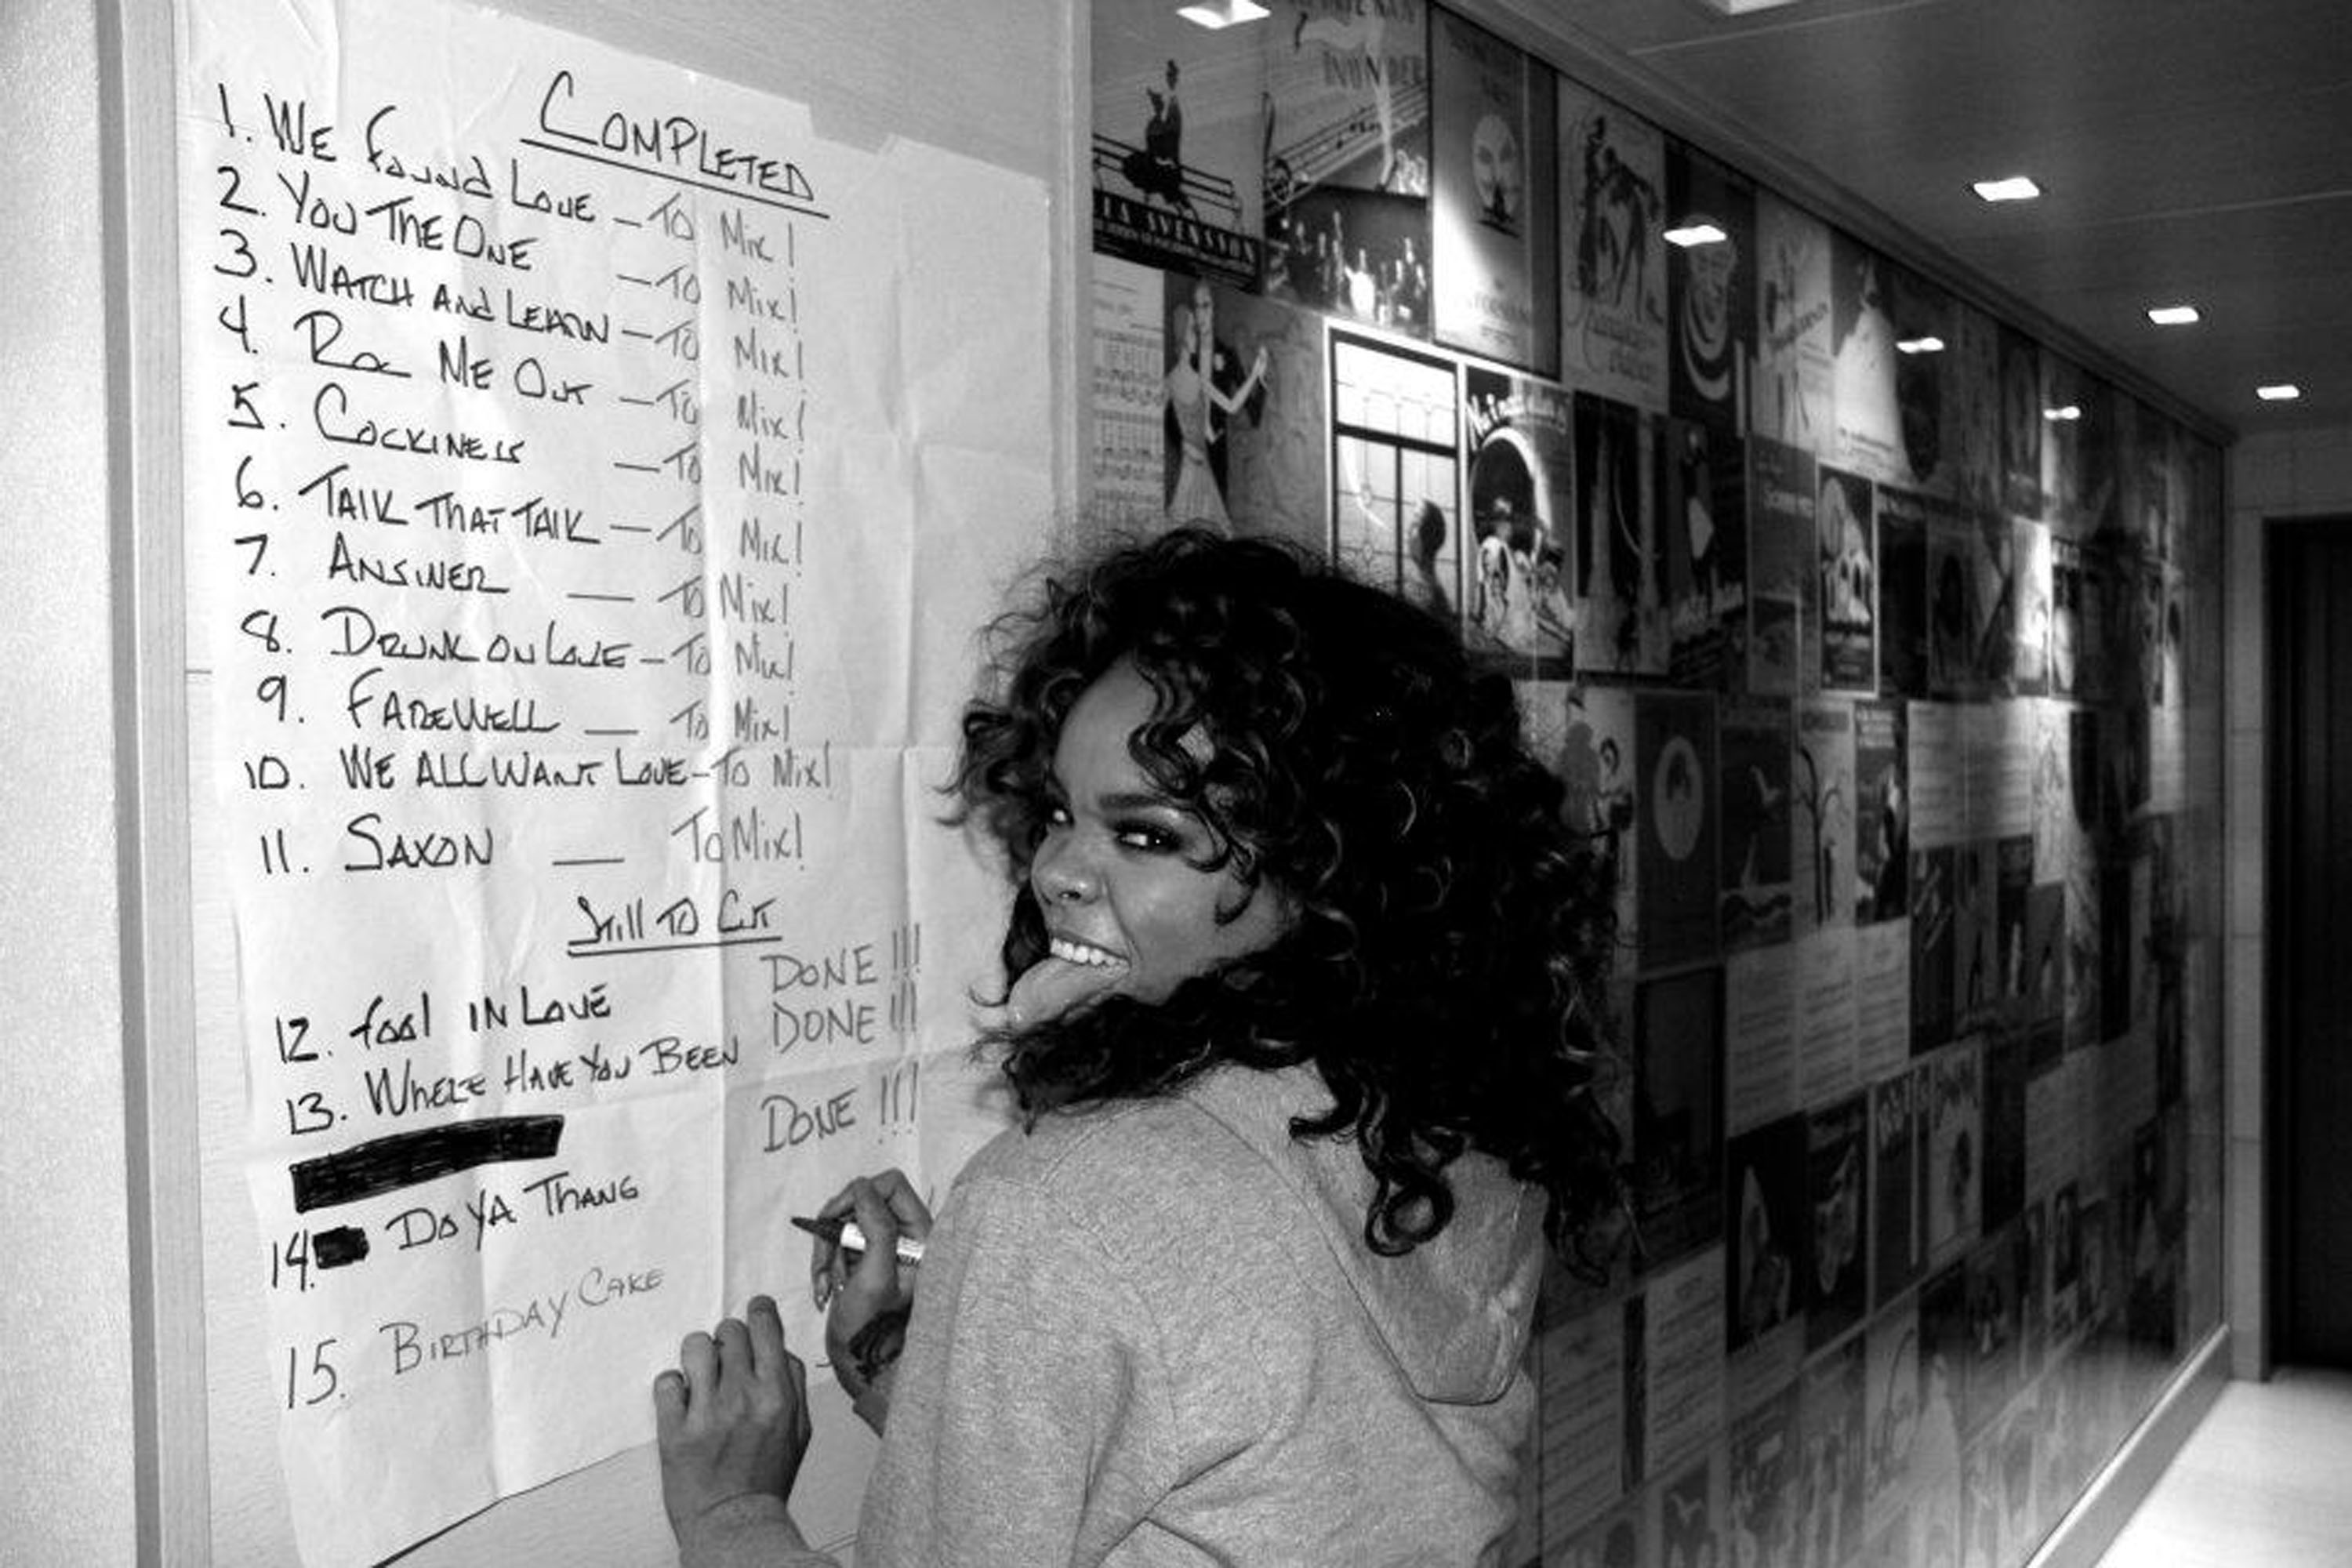 COMPLETED
1. WE found LOVE - TO MIX!
2. YOU THE ONE - TO MIX!
3. WATCH AND LEARN - TO MIX!
4. Roc ME OUT - TO MIX!
5. COCKINESS - TO MIX!
6. TALK THAT TALK - TO MIX!
7. ANSWER - TO MIX!
8. DRUNK ON LOVE - TO MIX!
9. FAREWELL - TO MIX!
10. WE ALL WANT LOVE - TO MIX!
11. SAXON - TO MIX!
Still TO CUT
12. fool IN LOVE DONE !!!
13. WHERE HAVE YOU BEEN DONE !!!
14. DO YA THANG DONE !!!
15. BIRTHDAY CAKE
SVENSSON